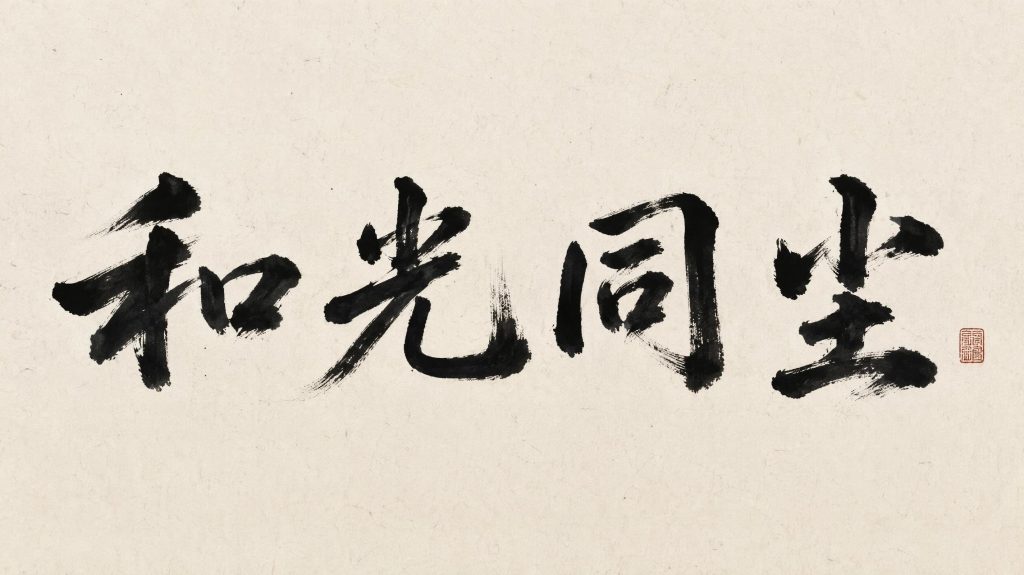 和光同尘